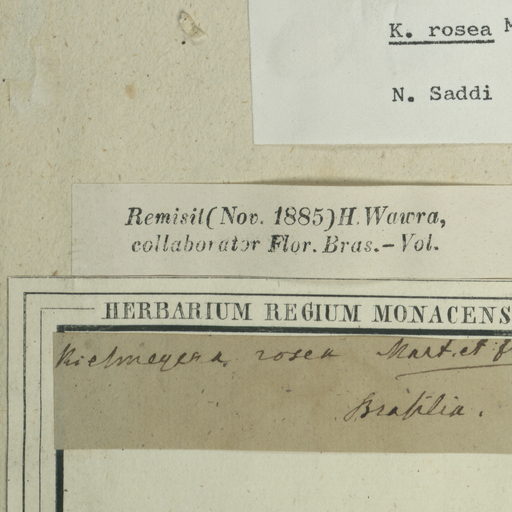 K. rosea M
N. Saddi
Remisit (Nov. 1885) H. Wawra,
collaborator Flor. Bras. – Vol.
HERBARIUM REGIUM MONACENS
Kielmeyera rosea Mart. et
Brasilia.